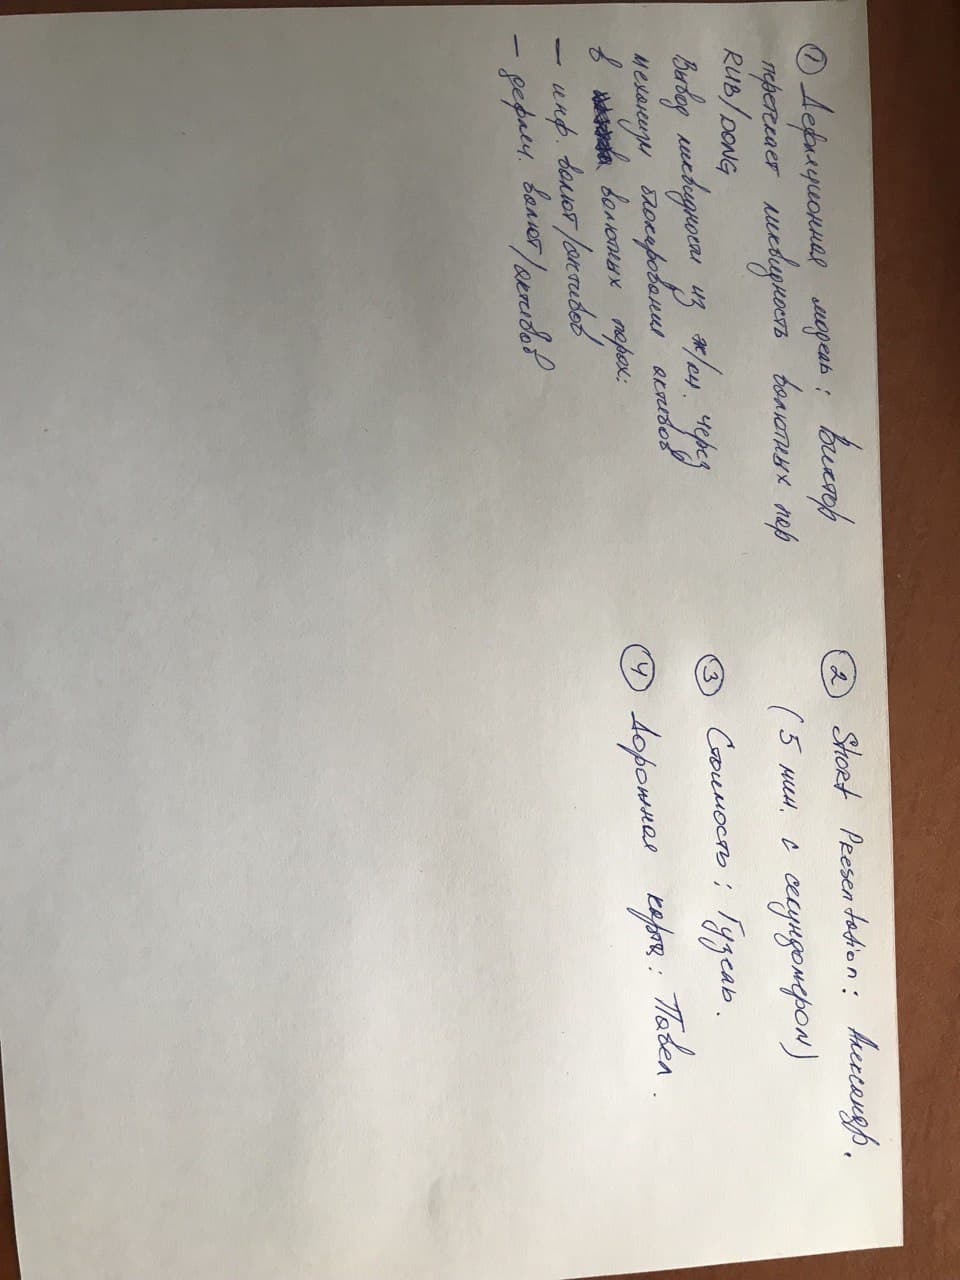 ① Дефляционная модель: Виктор
перетекает ликвидность валютных пар
RUB/DONG
Вывод ликвидности из ж/сч. через
механизм блокирования активов
в валютных парах:
— инф. валют/активов
— дефляц. валют/активов
② Short Presentation: Александр.
(5 мин. с секундомером)
③ Стоимость: Гузель.
④ Дорожная карта: Павел.